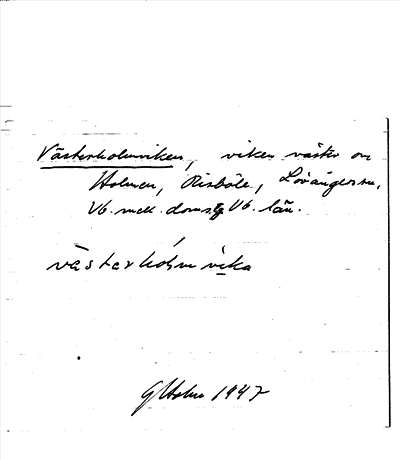 Västerholmviken, viken väster om
Holmen, Risböle, Lövångers sn.
Vb. mell. doms. Vb. län.
västerhólmvika
Holm 1947